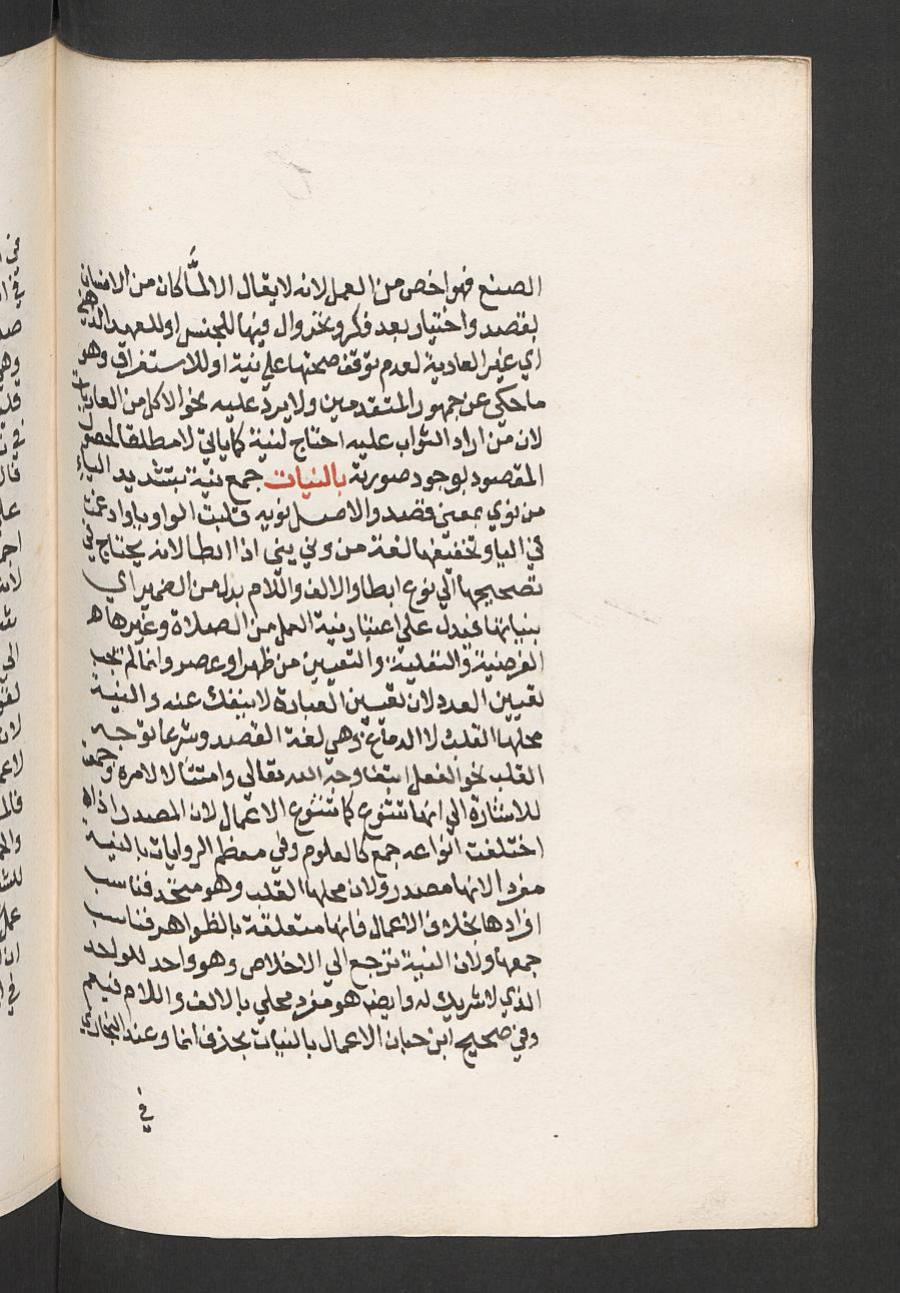 الصنع فهو اخص من العمل لانه لا يقال الا لمَّا كان من الانسان
بقصد واختيار بعد فكر وتحر وال فيها للجنس او للعهد الذهني
اي غير العادية لعدم توقف صحتها علي نية او للاستغراق وهو
ما حكي عن جمهور المتقدمين ولا يرد عليه نحو الاكل من العاديات
لان من اراد الثواب عليه احتاج لنية كما ياتي لا مطلقا لحصول
المقصود بوجود صورته بالنيات جمع نية بتشديد الياء
من نوي بمعني قصد والاصل نويه قلبت الواو ياء وادغمت
في اليا وتخفيفها لغة من وني يني اذا ابطا لانه يحتاج في
تصحيحها الي نوع ابطا والالف واللام بدل من الضمير اي
بنياتها فيدل علي اعتبار نية العمل من الصلاة وغيرها
الفرضية والنفلية والتعيين من ظهر او عصر وانما لم يجب
تعيين العدد لان تعيين العبادة لا ينفك عنه والنية
محلها القلب لا الدماغ وهي لغة القصد وشرعا توجه
القلب نحو الفعل ابتغا وجه الله تعالي وامتثالا لامره وجمعت
للاشارة الي انها تتنوع كما تتنوع الاعمال لان المصدر اذا
اختلفت انواعه جمع كالعلوم وفي معظم الروايات بالنية
مفردا لانها مصدر ولان محلها القلب وهو متحد فناسب
افرادها بخلاف الاعمال فانها متعلقة بالظواهر فناسب
جمعها ولان النية ترجع الي الاخلاص وهو واحد للواحد
الذي لا شريك له وايضا هو مفرد محلي بالالف واللام فيعم
وفي صحيح ابن حبان الاعمال بالنيات بحذف انما وعند البخاري
في